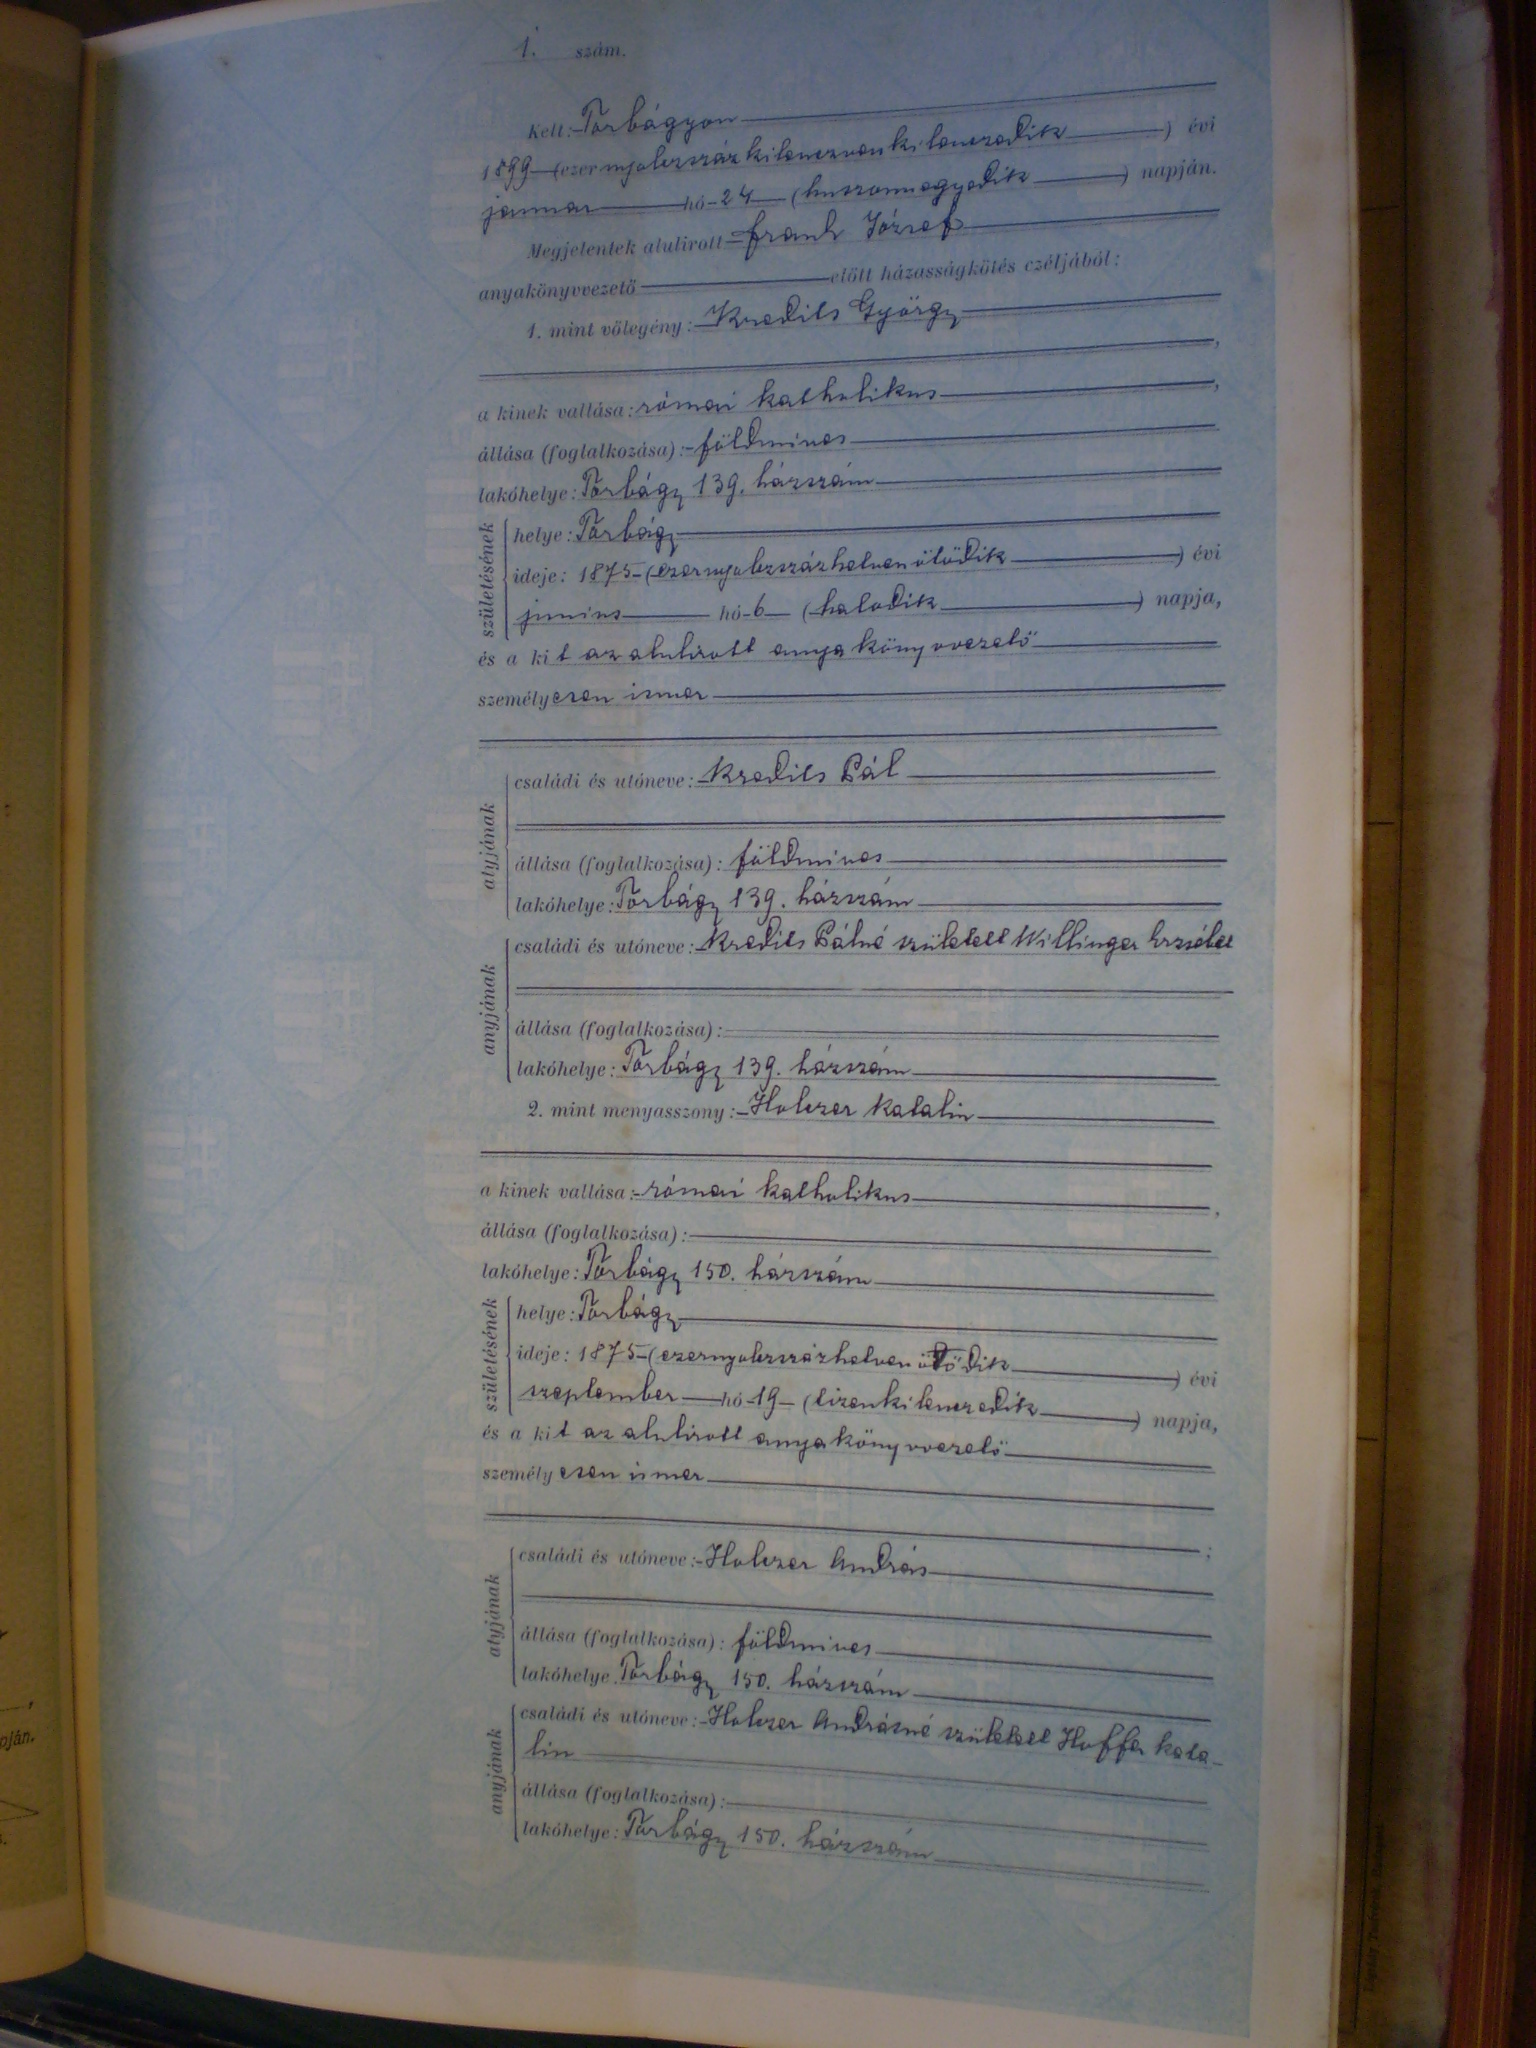 1. szám.
Kelt: Torbágyon
1899 (ezernyolczszázkilenczvenkilenczedik) évi
január hó 24 (huszonnegyedik) napján.
Megjelentek alulirott Frank József
anyakönyvvezető előtt házasságkötés czéljából:
1. mint vőlegény: Kredits György
a kinek vallása: római katholikus,
állása (foglalkozása): földmives
lakóhelye: Torbágy 139. házszám
születésének
helye: Torbágy
ideje: 1875 (ezernyolczszázhetvenötödik) évi
junius hó 6 (hatodik) napja,
és a kit az alulirott anyakönyvvezető
személyesen ismer
atyjának
családi és utóneve: Kredits Pál
állása (foglalkozása): földmives
lakóhelye: Torbágy 139. házszám
anyjának
családi és utóneve: Kredits Pálné született Willinger Erzsébet
állása (foglalkozása):
lakóhelye: Torbágy 139. házszám
2. mint menyasszony: Holczer Katalin
a kinek vallása: római katholikus,
állása (foglalkozása):
lakóhelye: Torbágy 150. házszám
születésének
helye: Torbágy
ideje: 1875 (ezernyolczszázhetvenötödik) évi
szeptember hó 19 (tizenkilenczedik) napja,
és a kit az alulirott anyakönyvvezető
személyesen ismer
;
atyjának
családi és utóneve: Holczer András
állása (foglalkozása): földmives
lakóhelye Torbágy 150. házszám
anyjának
családi és utóneve: Holczer Andrásné született Hoffer Kata-
lin
állása (foglalkozása):
lakóhelye: Torbágy 150. házszám
pján.